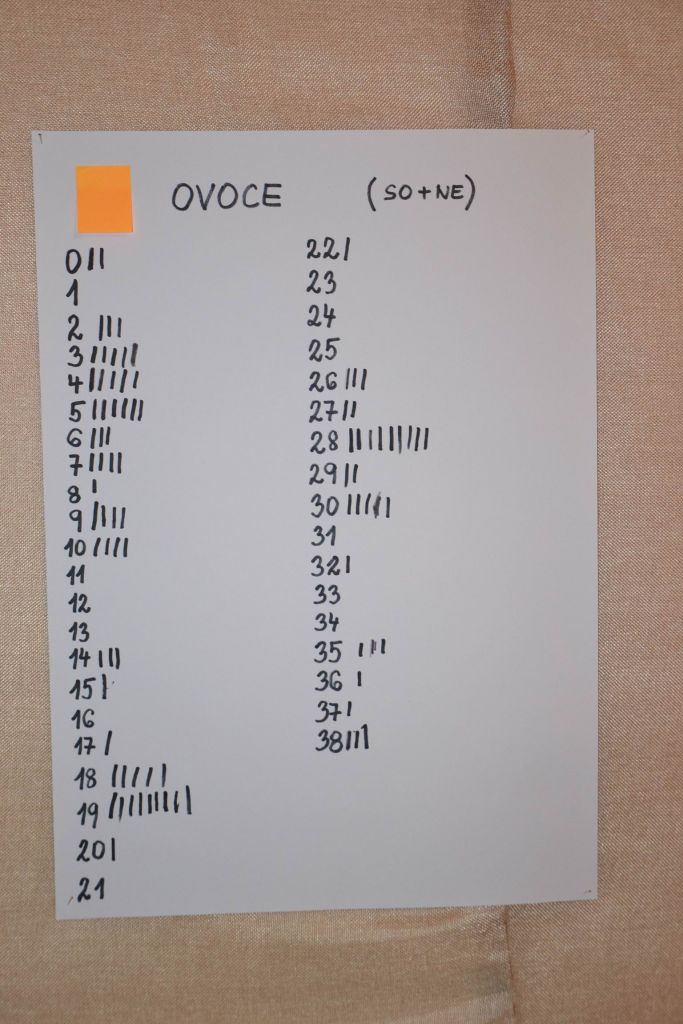 OVOCE (SO+NE)
0 ||
1
2 |||
3 |||||
4 ||||||
5 |||||||
6 |||
7 ||||
8 |
9 ||||
10 ||||
11
12
13
14 |||
15 |
16
17 |
18 |||||
19 |||||||||
20 |
21
22 |
23
24
25
26 |||
27 ||
28 |||||||||
29 ||
30 |||||
31
32 |
33
34
35 ||||
36 |
37 |
38 |||